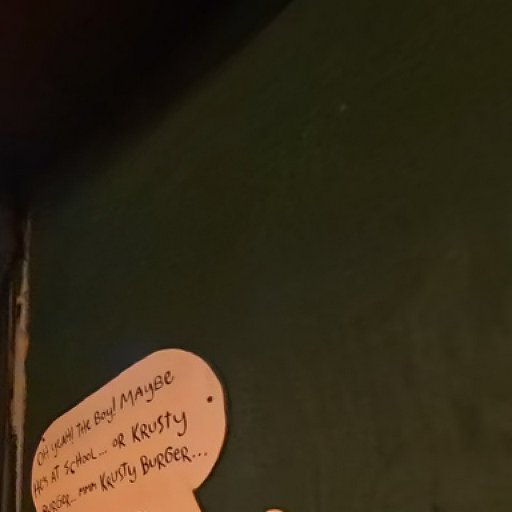 OH YEAH! THE BOY! MAYBE
HE'S AT SCHOOL... OR KRUSTY
BURGER... MMM KRUSTY BURGER...